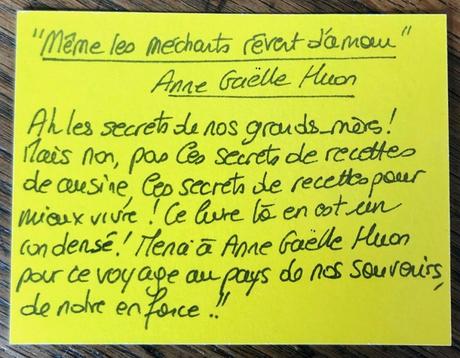 "Même les méchants rêvent d'amour"
Anne Gaëlle Huon
Ah les secrets de nos grands-mères !
Mais non, pas les secrets de recettes
de cuisine, les secrets de recettes pour
mieux vivre ! Ce livre là en est un
condensé ! Merci à Anne Gaëlle Huon
pour ce voyage au pays de nos souvenirs,
de notre enfance !!